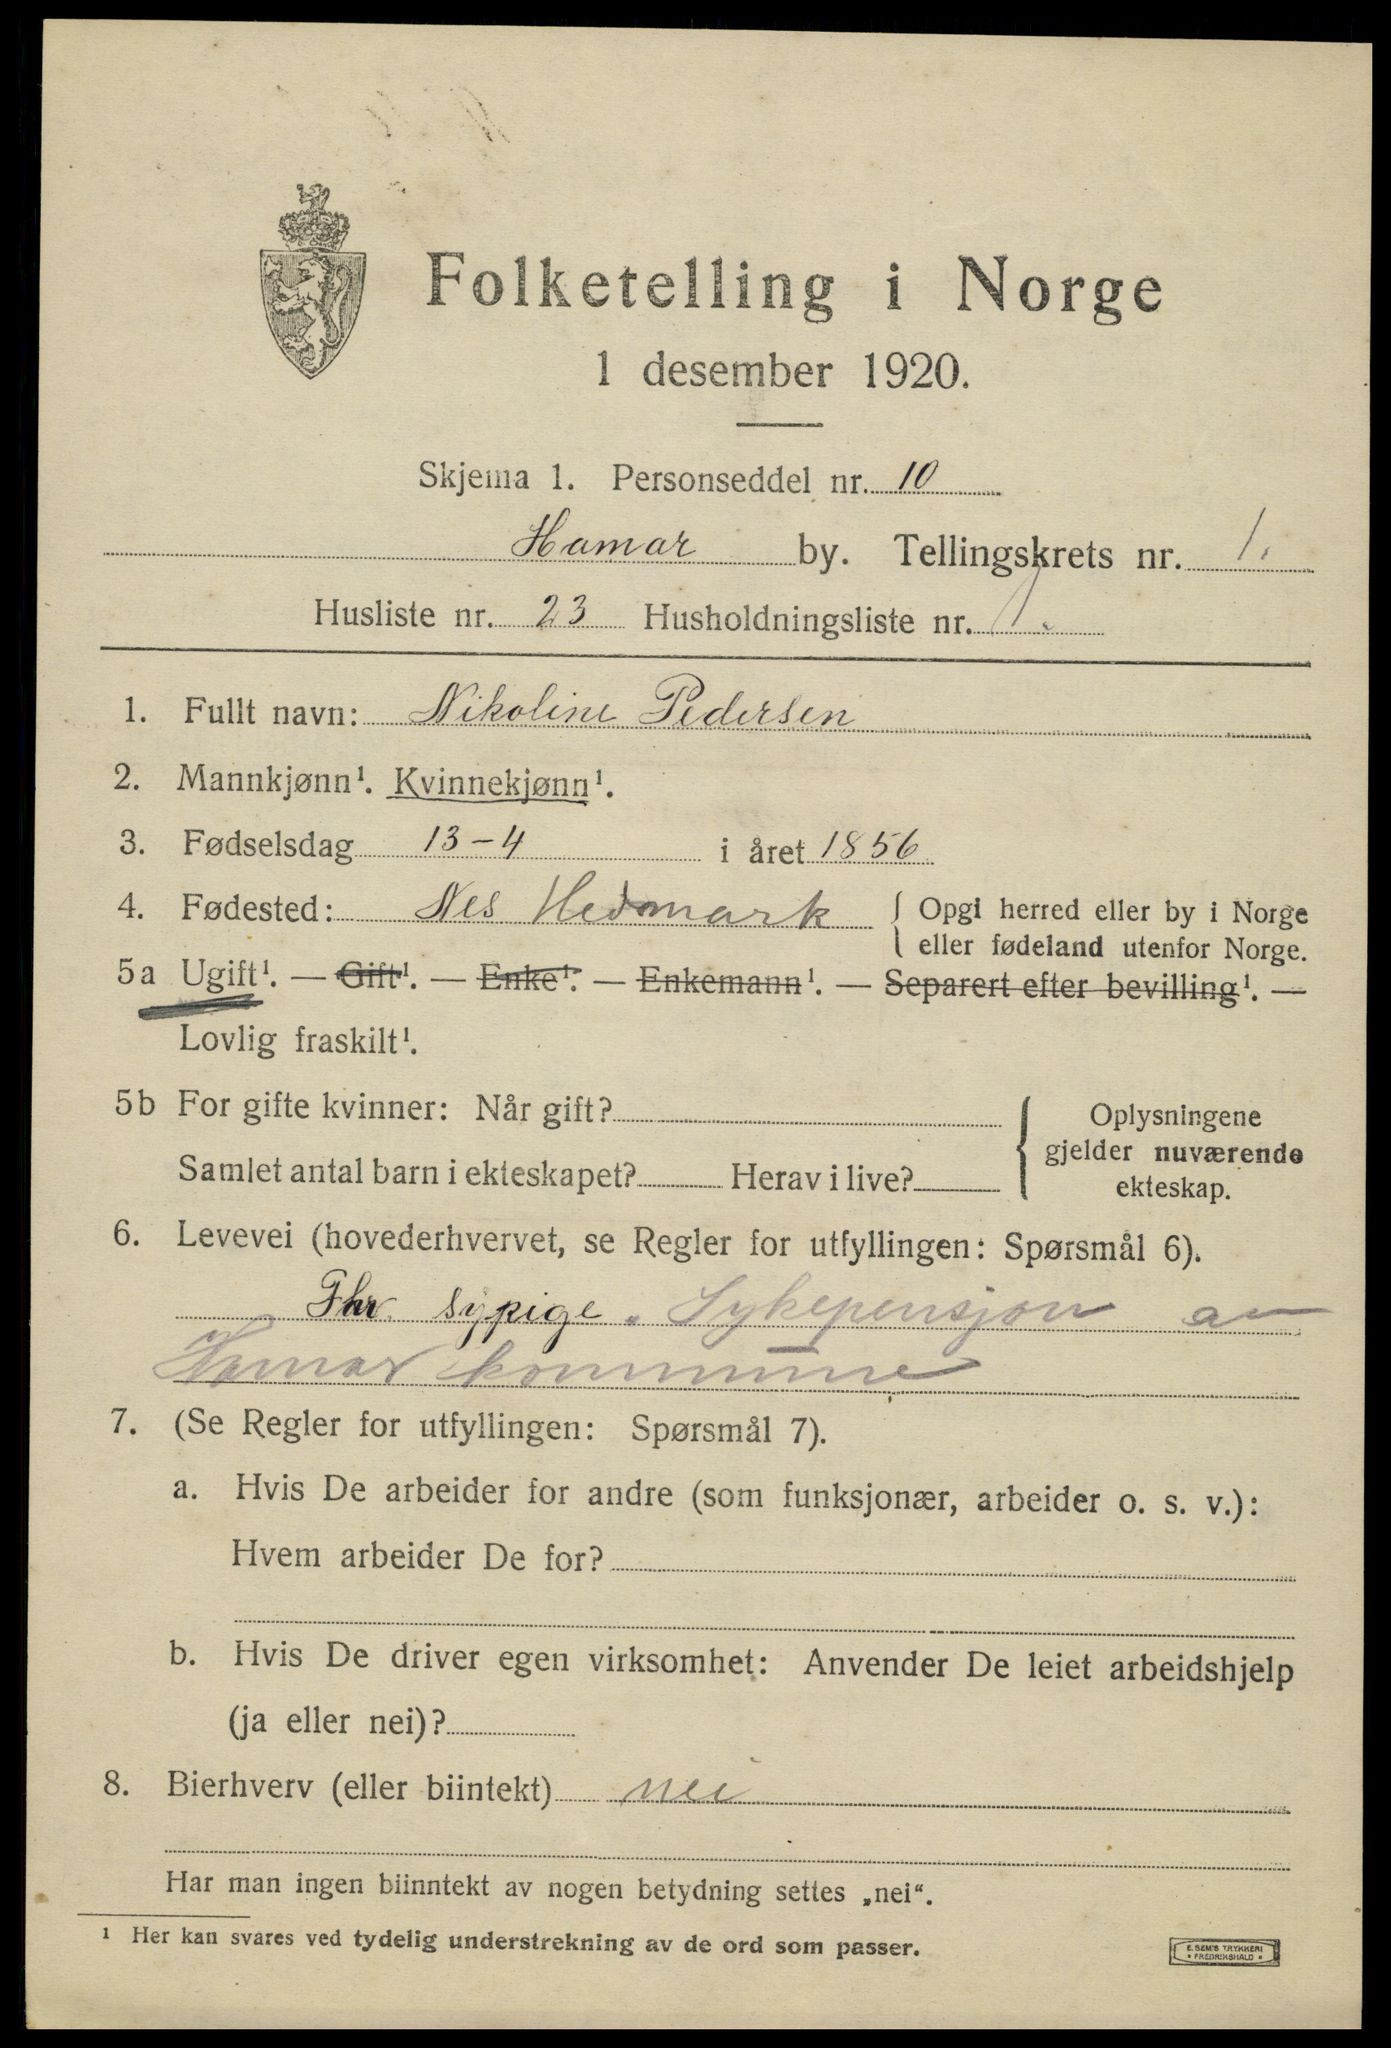 Folketelling i Norge
1 desember 1920.
Skjema 1. Personseddel nr. 10
Hamar by. Tellingskrets nr. 1.
Husliste nr. 23 Husholdningsliste nr. 1.
1. Fullt navn: Nikoline Pedersen
2. Mannkjønn¹. Kvinnekjønn¹.
3. Fødselsdag 13-4 i året 1856
4. Fødested: Nes Hedmark { Opgi herred eller by i Norge
eller fødeland utenfor Norge.
5a Ugift¹. — Gift¹. — Enke¹. — Enkemann¹. — Separert efter bevilling¹. —
Lovlig fraskilt¹.
5b For gifte kvinner: Når gift?
Samlet antal barn i ekteskapet? Herav i live?
{ Oplysningene
gjelder nuværende
ekteskap.
6. Levevei (hovederhvervet, se Regler for utfyllingen: Spørsmål 6).
Fhv. sypige. Sykepensjon av
Hamar kommune
7. (Se Regler for utfyllingen: Spørsmål 7).
a. Hvis De arbeider for andre (som funksjonær, arbeider o. s. v.):
Hvem arbeider De for?
b. Hvis De driver egen virksomhet: Anvender De leiet arbeidshjelp
(ja eller nei)?
8. Bierhverv (eller biintekt) nei
Har man ingen biinntekt av nogen betydning settes „nei“.
¹ Her kan svares ved tydelig understrekning av de ord som passer.
E. SEM'S TRYKKERI
• FREDRIKSHALD •